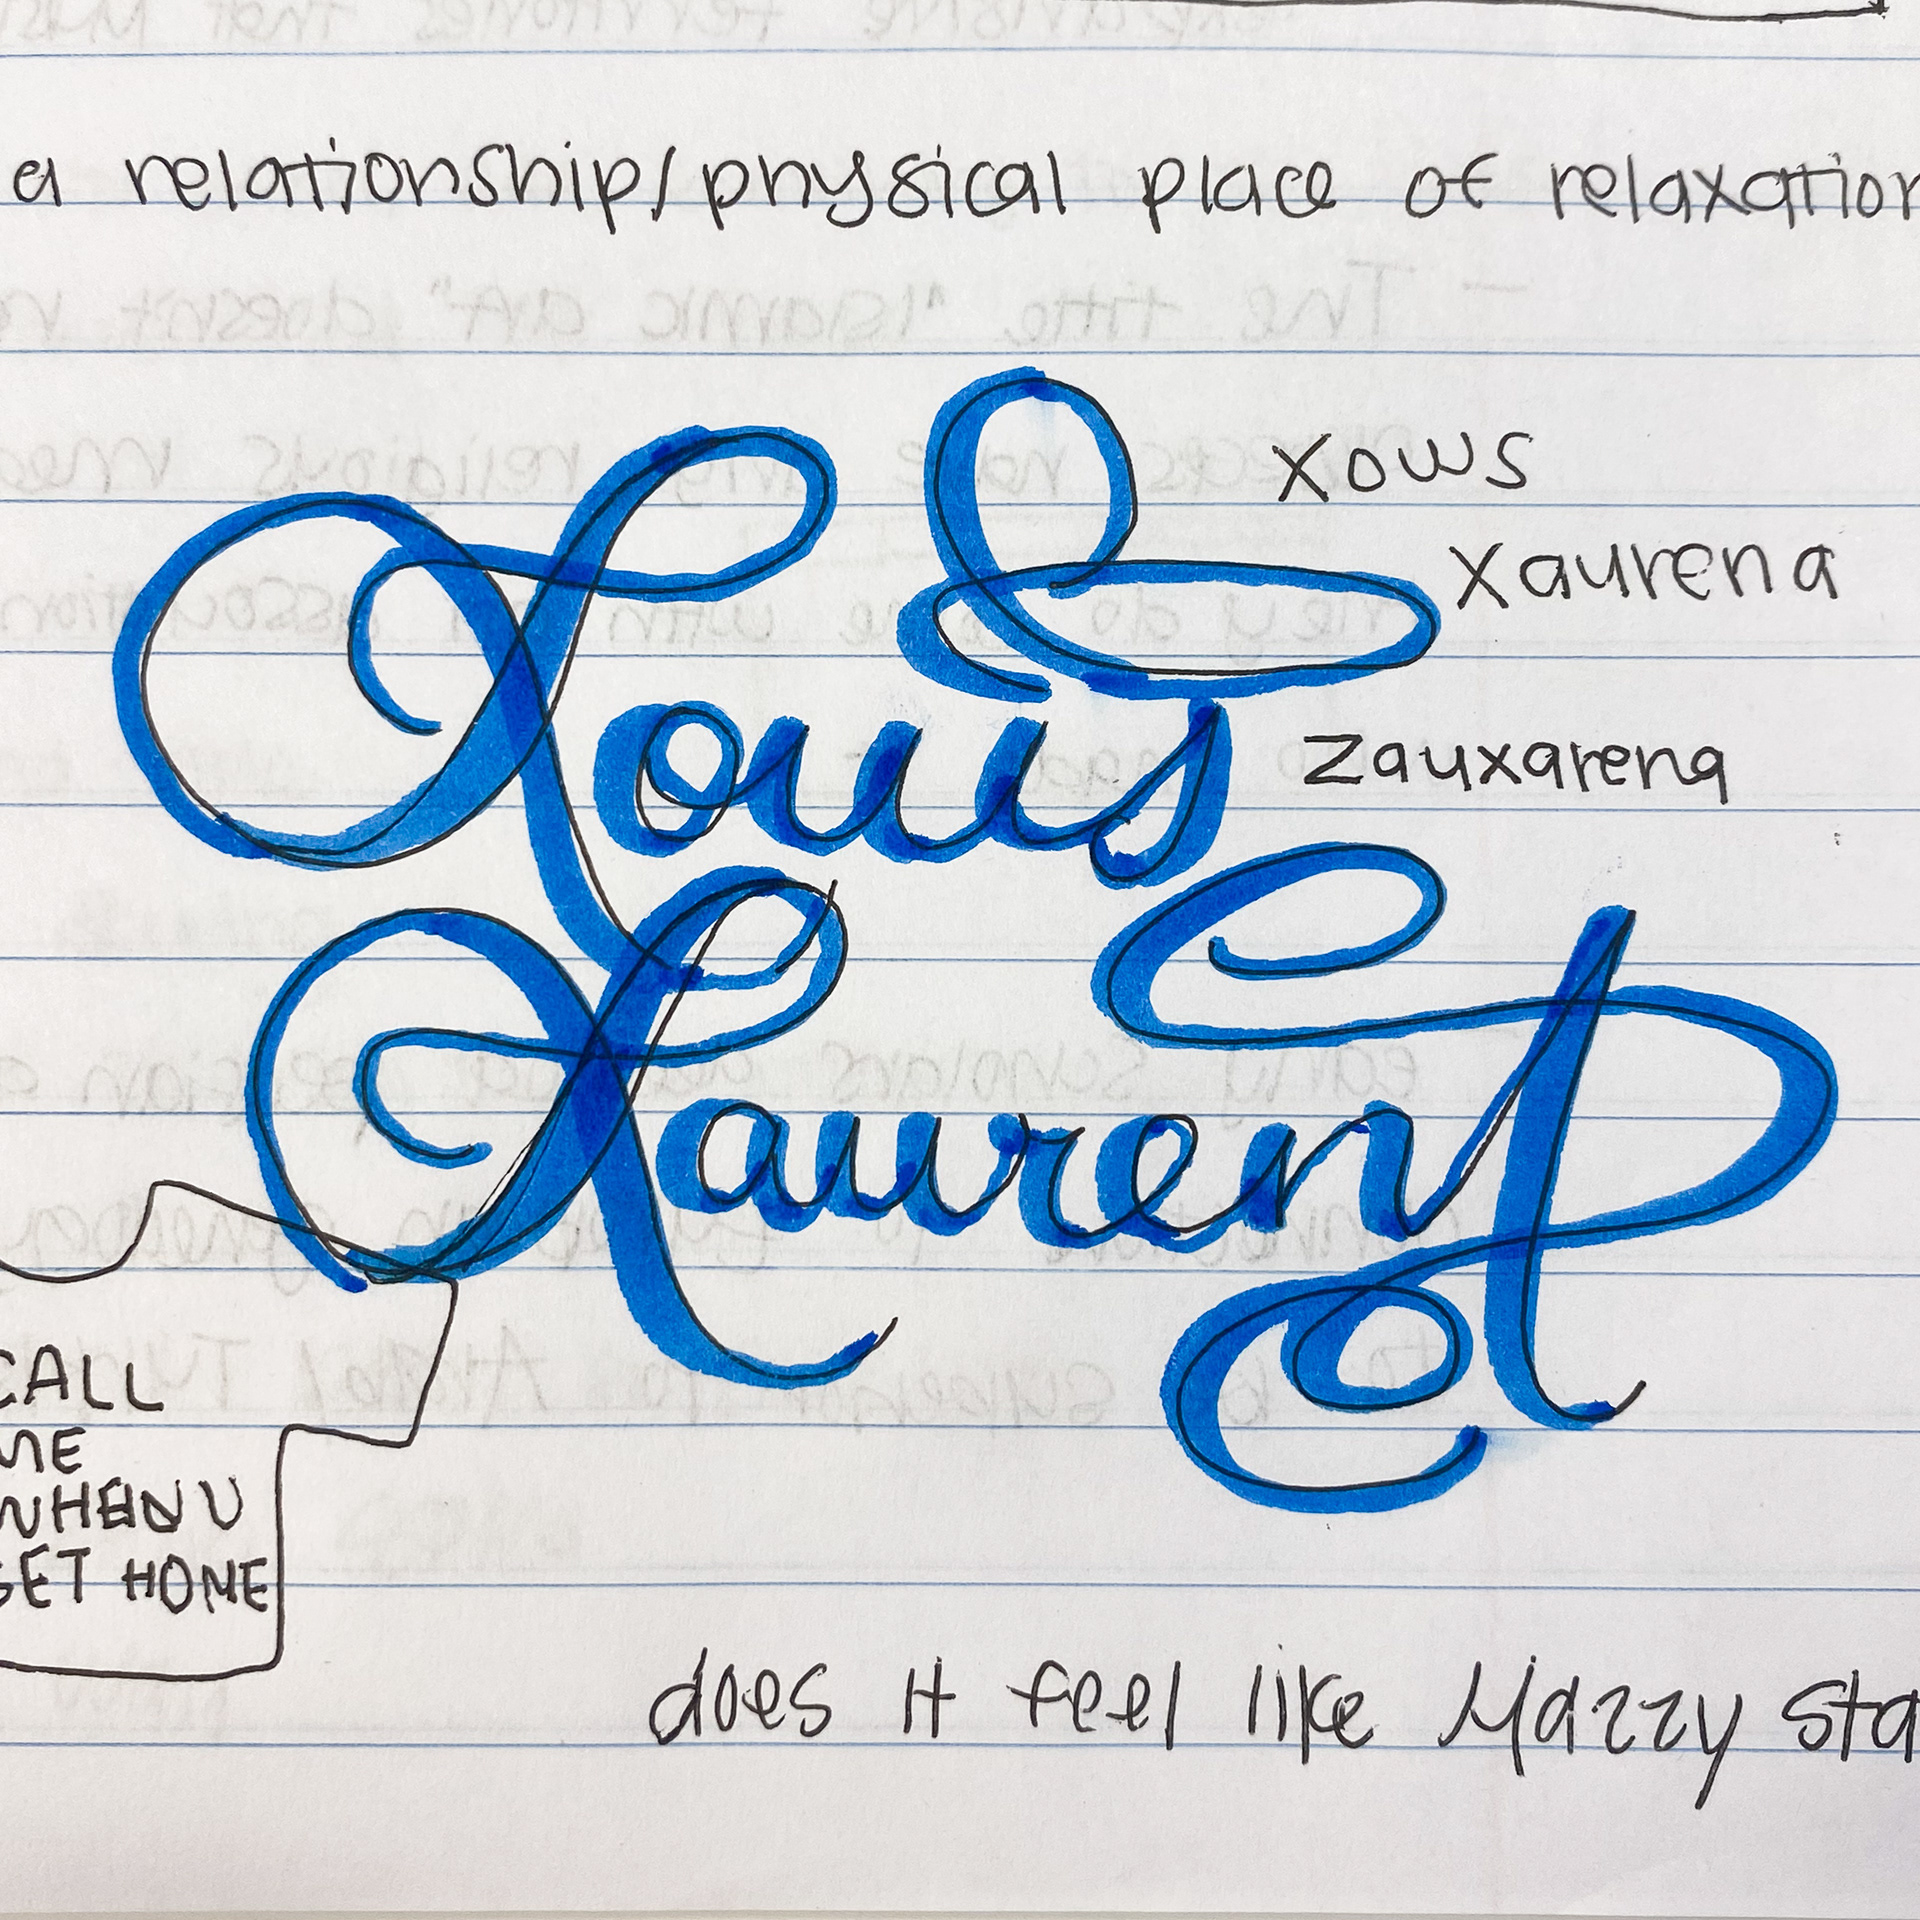 a relationship/physical place of relaxation
xows
xaurena
zauxarena
Louis
Laurent
CALL
ME
WHEN U
GET HOME
does it feel like Mazzy sta